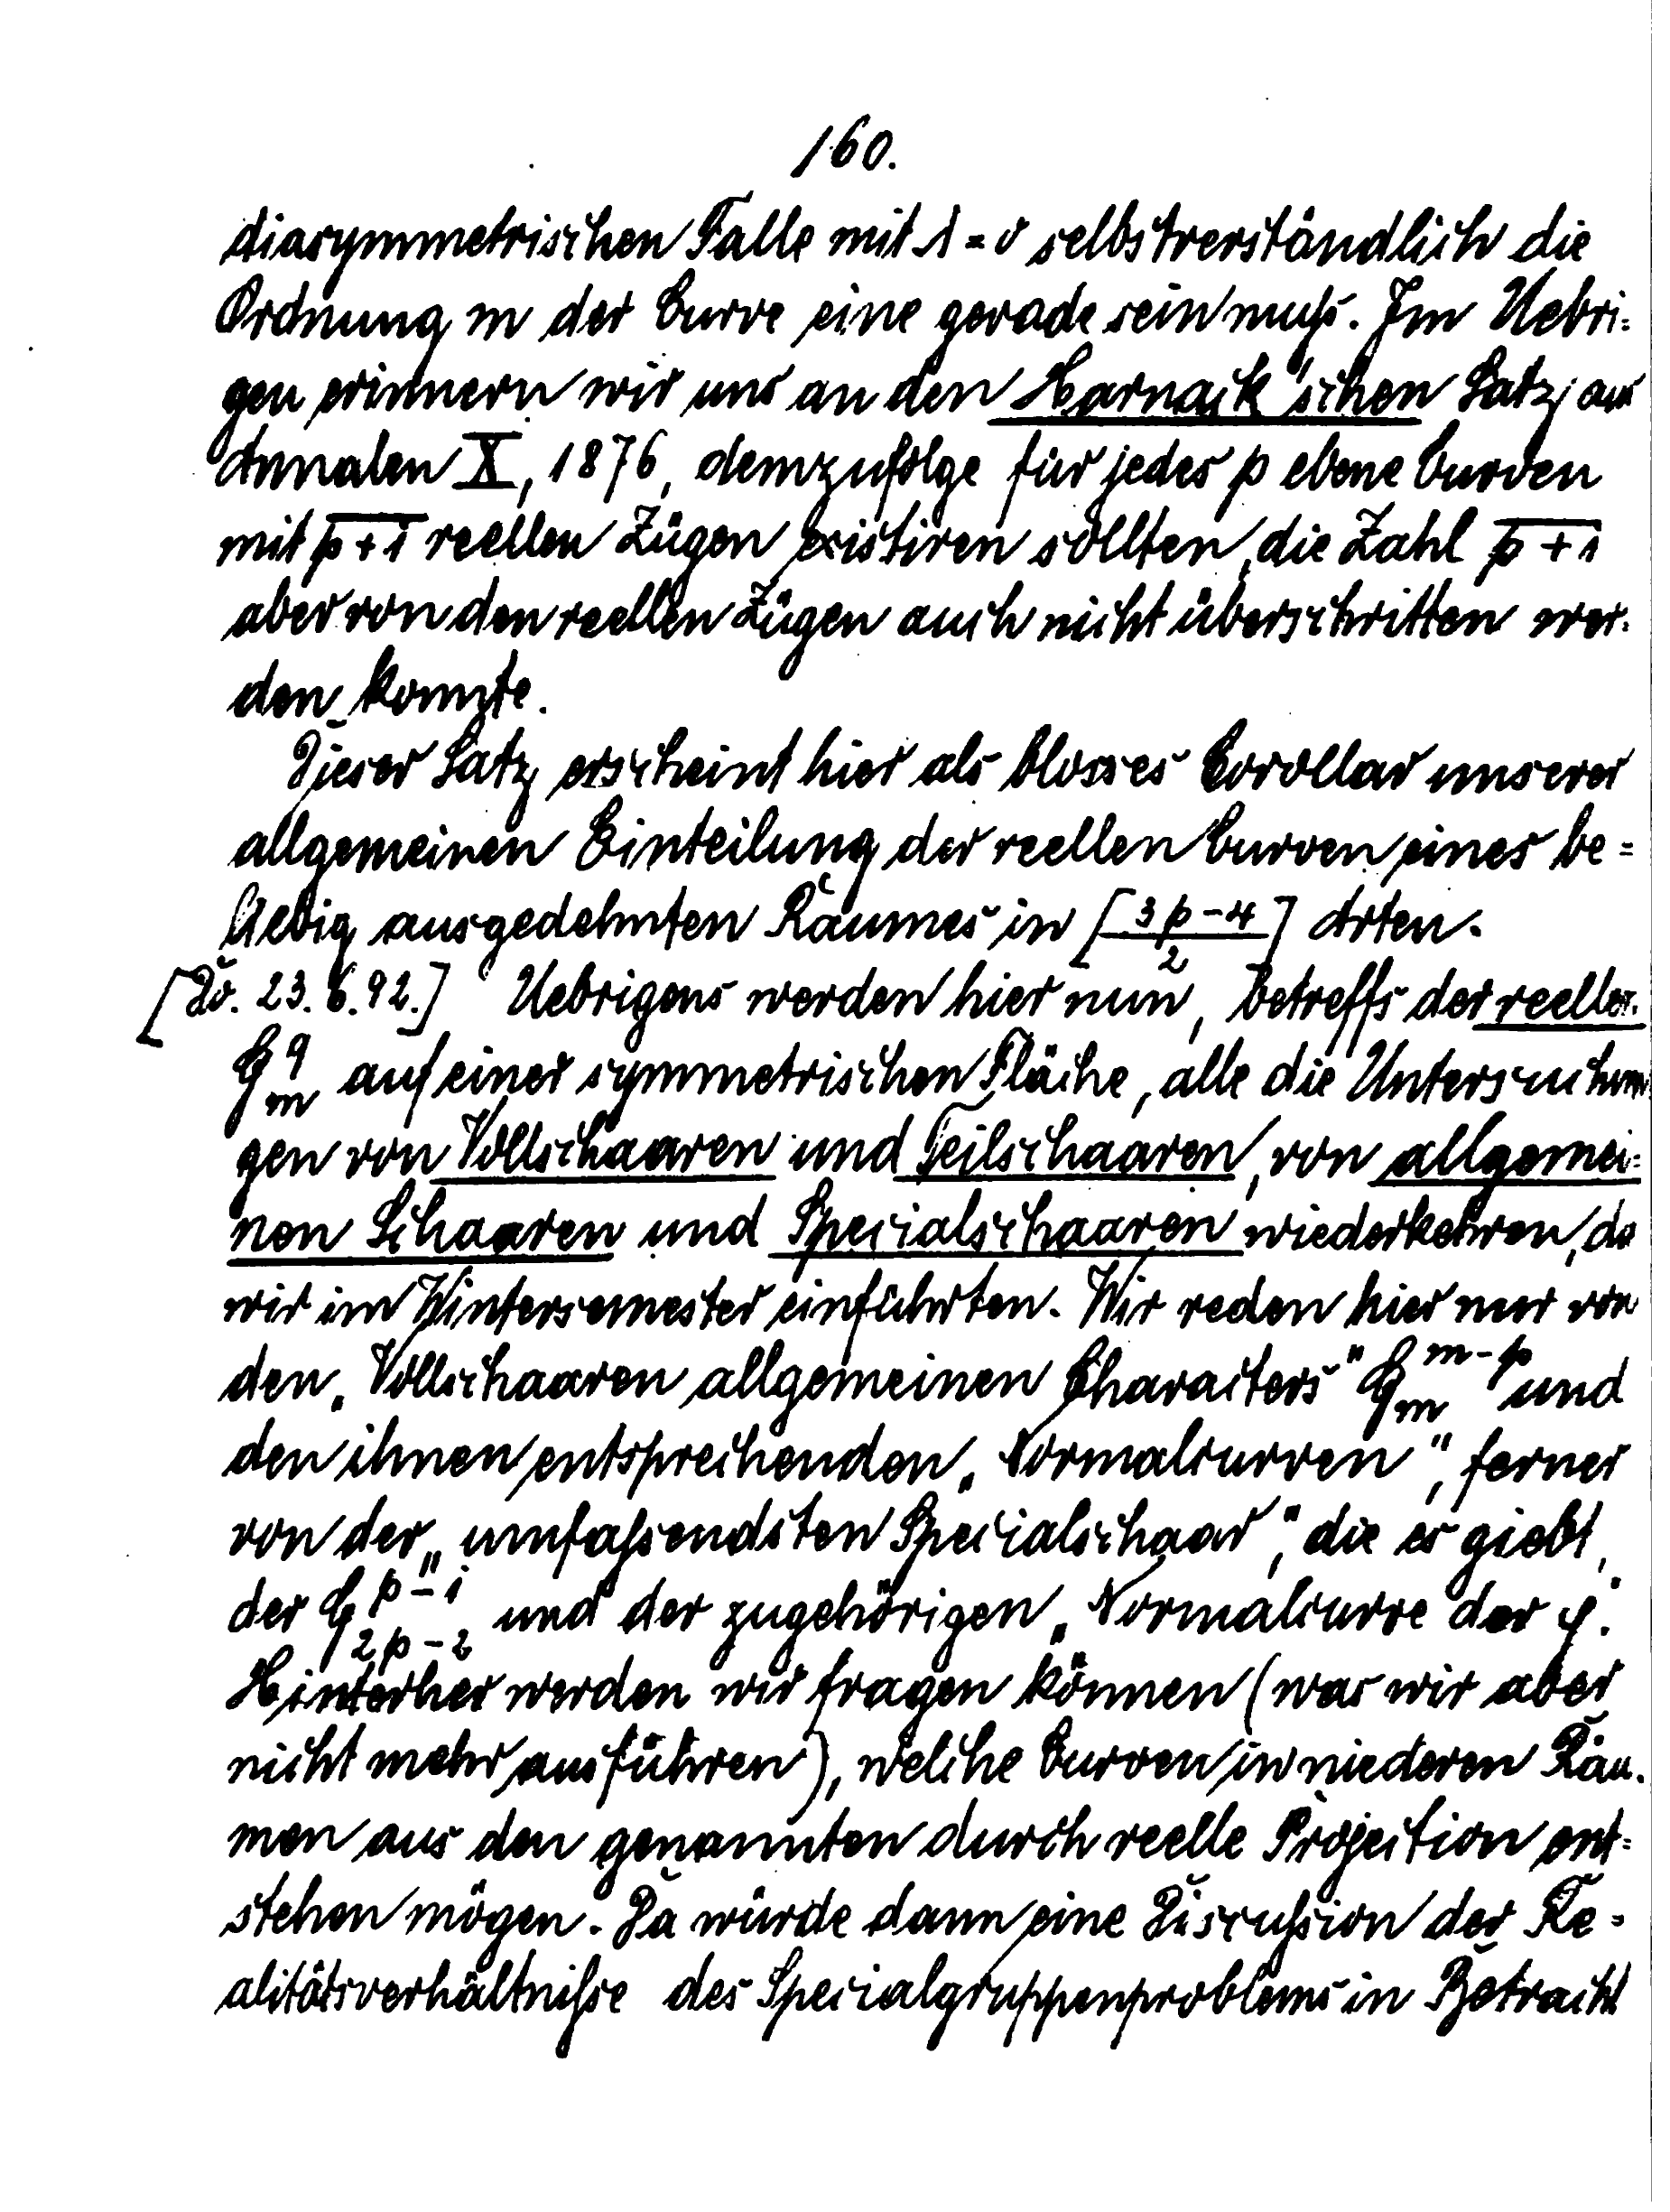 160.
diasymmetrischen Falle mit λ = 0 selbstverständlich die
Ordnung m der Curve eine gerade sein muß. Im Uebri=
gen erinnern wir uns an den Harnack'schen Satz aus
Annalen X, 1876, demzufolge für jedes p ebene Curven
mit p+1 reellen Zügen existiren sollten, die Zahl p+1
aber von den reellen Zügen auch nicht überschritten wer=
den konnte.
Dieser Satz erscheint hier als blosses Corollar unserer
allgemeinen Einteilung der reellen Curven eines be=
liebig ausgedehnten Raumes in [3p-4/2] Arten.
[Do. 23.6.92.] Uebrigens werden hier nun, betreffs der reellen
G_m^q auf einer symmetrischen Fläche, alle die Untersuchun
gen von Vollschaaren und Teilschaaren, von allgemei=
nen Schaaren und Specialschaaren wiederkehren, die
wir im Wintersemester einführten. Wir reden hier nur von
den „Vollschaaren allgemeinen Characters" G_m^{m-p} und
den ihnen entsprechenden „Normalcurven", ferner
von der „umfaßendsten Specialschaar", die es giebt,
der G_{2p-2}^{p-1} und der zugehörigen „Normalcurve der φ".
Hinterher werden wir fragen können (was wir aber
nicht mehr ausführen), welche Curven in niederen Räu=
men aus den genannten durch reelle Projection ent=
stehen mögen. Da würde dann eine Discußion der Re=
alitätsverhältniße des Specialgruppenproblems in Betracht